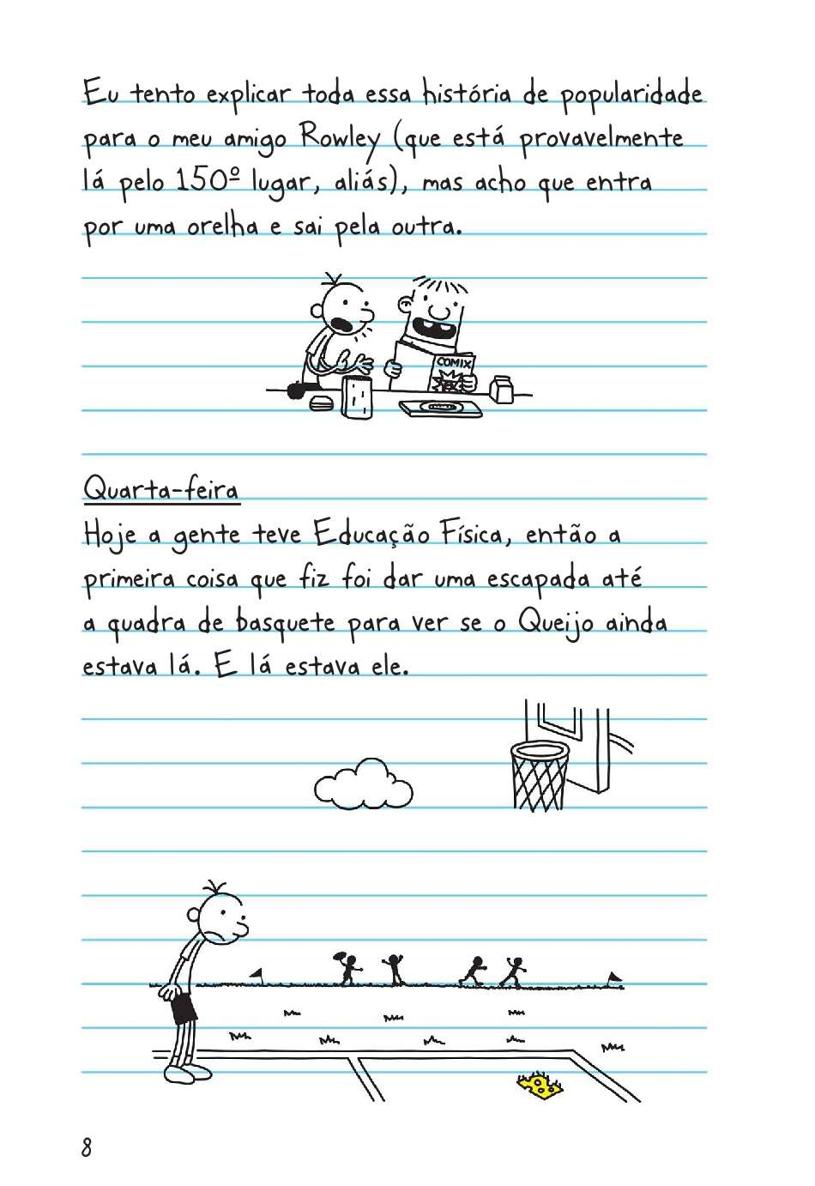 Eu tento explicar toda essa história de popularidade
para o meu amigo Rowley (que está provavelmente
lá pelo 150º lugar, aliás), mas acho que entra
por uma orelha e sai pela outra.
COMIX
Quarta-feira
Hoje a gente teve Educação Física, então a
primeira coisa que fiz foi dar uma escapada até
a quadra de basquete para ver se o Queijo ainda
estava lá. E lá estava ele.
8